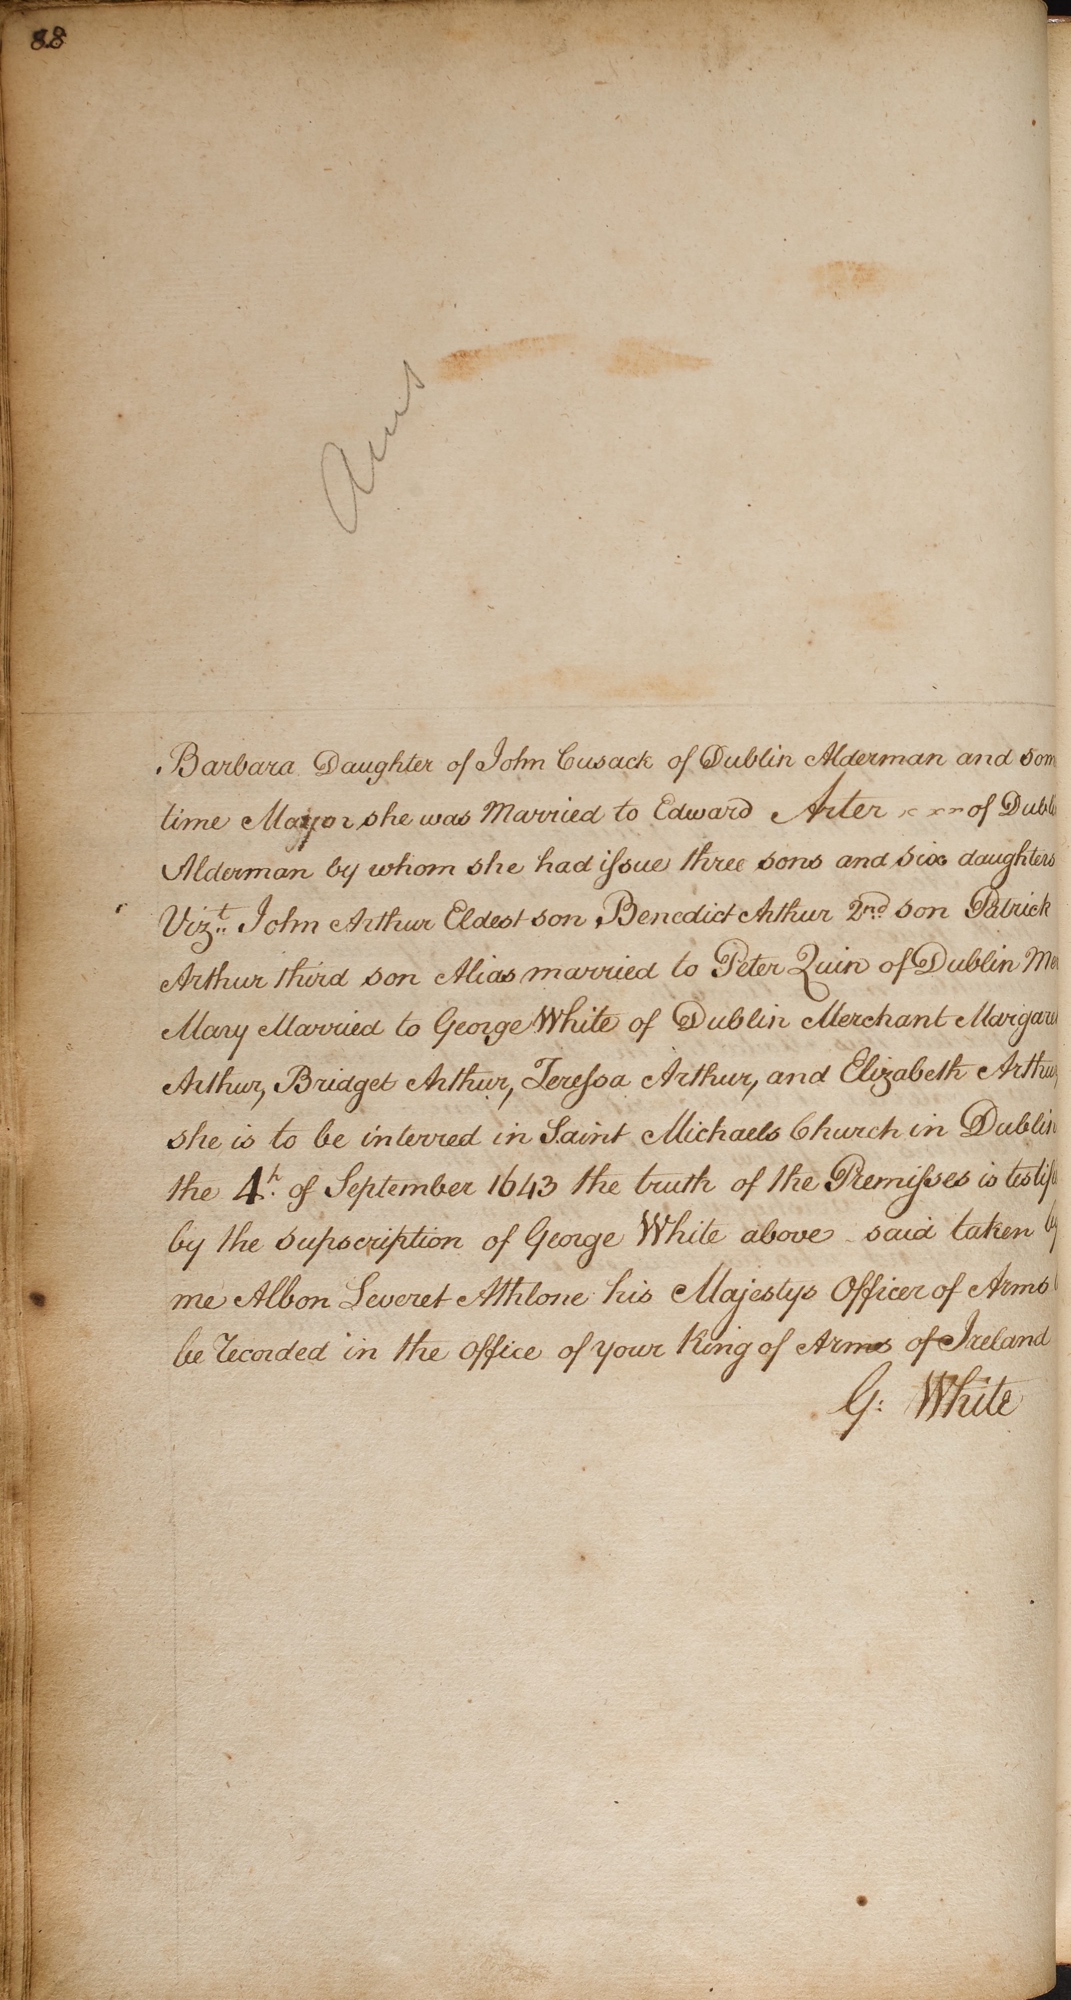 88
Arms
Barbara Daughter of John Cusack of Dublin Alderman and som
time Mayor she was Married to Edward Arter of Dubl
Alderman by whom she had issue three sons and six daughters
Vizt. John Arthur Eldest son Benedict Arthur 2nd son Patrick
Arthur third son Alias married to Peter Quin of Dublin Mer
Mary Married to George White of Dublin Merchant Margaret
Arthur, Bridget Arthur, Teressa Arthur, and Elizabeth Arthur
she is to be interred in Saint Michaels Church in Dublin
the 4th. of September 1643 the truth of the Premisses is testifi
by the supscription of George White above said taken by
me Albon Leveret Athlone his Majestys Officer of Arms
be recorded in the office of your King of Arms of Ireland
G: White